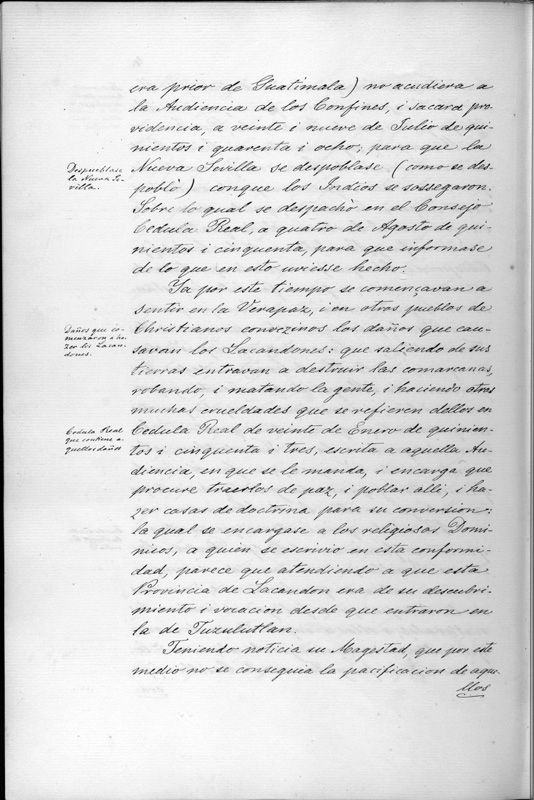 era prior de Guatimala) no acudiera a
la Audiencia de los Confines, i sacara pro
videncia, a veinte i nueve de Julio de qui-
nientos i quarenta i ocho; para que la
Despueblase
la Nueva Se-
villa.
Nueva Sevilla se despoblase (como se des-
poblò) conque los Indios se sossegaron.
Sobre lo qual se despachò en el Consejo
Cedula Real, a quatro de Agosto de qui-
nientos i cinquenta, para que informase
de lo que en esto uviesse hecho.
Ya por este tiempo se començavan a
sentir en la Verapaz, i en otros pueblos de
Daños que co-
menzaron a ha-
zer los Lacan-
dones.
Christianos convezinos los daños que cau-
savan los Lacandones: que saliendo de sus
tierras entravan a destruir las comarcanas,
robando, i matando la gente, i haciendo otras
muchas crueldades que se refieren dellos en
Cedula Real
que contiene a-
quellos daños
Cedula Real de veinte de Enero de quinien-
tos i cinquenta i tres, escrita a aquella Au-
diencia, en que se le manda, i encarga que
procure traerlos de paz, i poblar alli, i ha-
zer casas de doctrina para su conversion:
la qual se encargase a los religiosos Domi-
nicos, a quien se escrivio en esta conformi-
dad, parece que atendiendo a que esta
Provincia de Lacandon era de su descubri-
miento i vocacion desde que entraron en
la de Tuzulutlan.
Teniendo noticia su Magestad, que por este
medio no se conseguia la pacificacion de aque-
llos